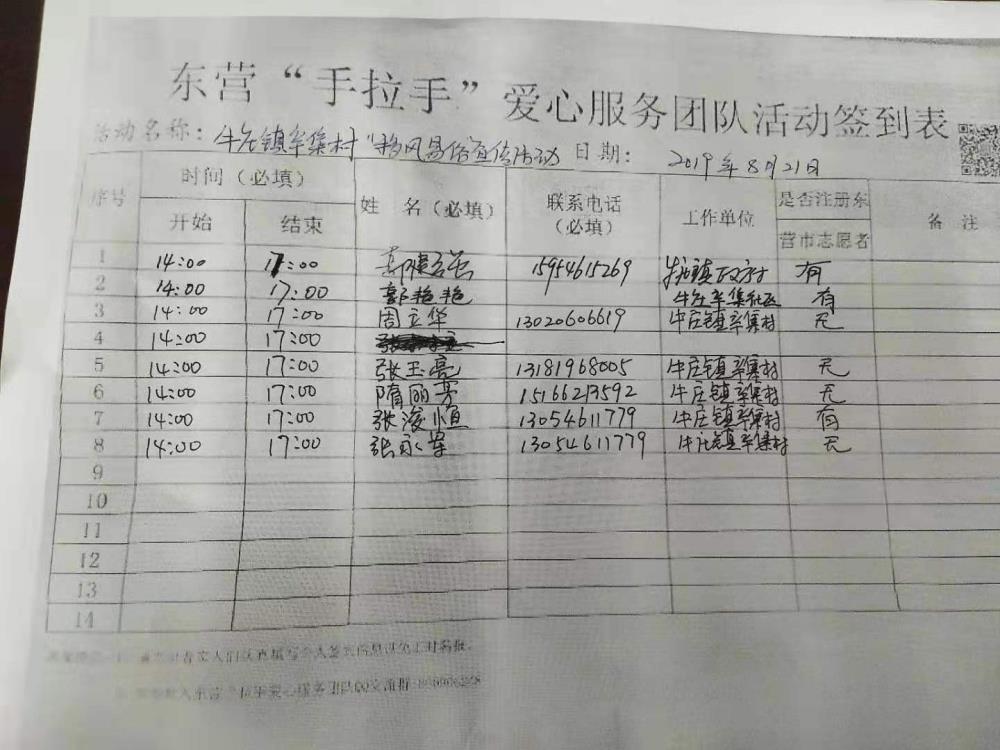 东营“手拉手”爱心服务团队活动签到表
活动名称：牛庄镇辛集村“移风易俗宣传活动 日期：2019年8月21日
序号 时间（必填） 姓 名（必填） 联系电话（必填） 工作单位 是否注册东营市志愿者 备 注
开始 结束
1 14:00 17:00 15954615269 牛庄镇政府 有
2 14:00 17:00 郭艳艳 牛庄辛集社区 有
3 14:00 17:00 周立华 13020606619 牛庄镇辛集村 无
4 14:00 17:00
5 14:00 17:00 张玉亮 13181968005 牛庄镇辛集村 无
6 14:00 17:00 隋丽芳 15166213592 牛庄镇辛集村 无
7 14:00 17:00 张浚恒 13054611779 牛庄镇辛集村 有
8 14:00 17:00 张永军 13054611779 牛庄镇辛集村 无
9
10
11
12
13
14